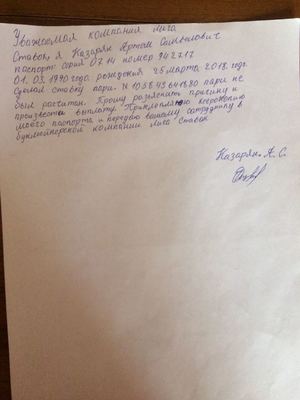 Уважаемая компания лига
Ставок, я Казарян Артём Самвелович
паспорт: серия 0714 номер 942717
01.03.1990 года рождения 25 марта 2018 год.
сделал ставку пари. N 105843641680 пари не
был расчитан. Прошу разъяснить причину и
произвести выплату. Прикладываю ксерокопию
моего паспорта и передаю вашему сотруднику в
букмейкерской компании Лига Ставок
Казарян. А. С.